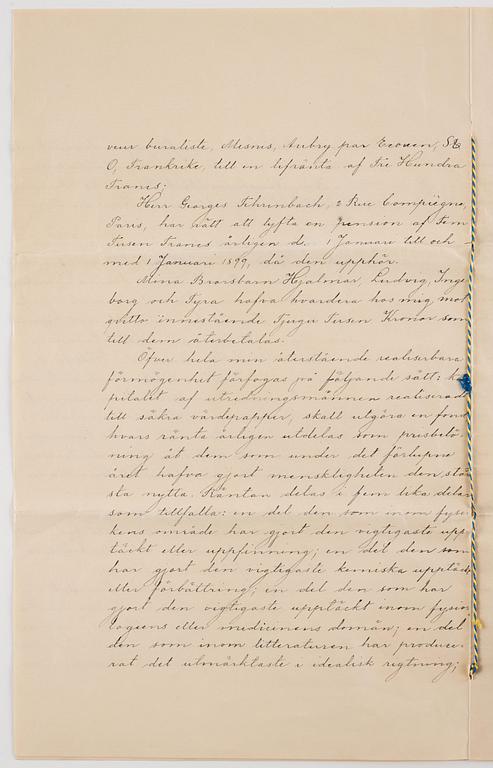 veur buraliste, Mesnis, Aubry par Ecouen, S&
O, Frankrike, till en lifränta af Tre Hundra
Francs;
Herr Georges Fehrenbach, 2 Rue Compiègne,
Paris, har rätt att lyfta en pension af Fem
Tusen Francs årligen d. 1 Januari till och
med 1 Januari 1899, då den upphör.
Mina Brorsbarn Hjalmar, Ludvig, Inge
borg och Tyra hafva hvardera hos mig mot
qvitto innestående Tjugu Tusen Kronor som
till dem återbetalas.
Öfver hela min återstående realiserbara
förmögenhet förfogas på följande sätt: ka
pitalet af utredningsmännen realiserad
till säkra värdepapper, skall utgöra en fond
hvars ränta årligen utdelas som prisbelö-
ning åt dem som under det förlupne
året hafva gjort menskligheten den stör
sta nytta. Räntan delas i fem lika delar
som tillfalla: en del den som inom fysi
kens område har gjort den vigtigaste upp
täckt eller uppfinning; en del den som
har gjort den vigtigaste kemiska upptäckt
eller förbättring; en del den som har
gjort den vigtigaste upptäckt inom fysio
logiens eller medicinens domän; en del
den som inom litteraturen har produce-
rat det utmärktaste i idealisk rigtning;